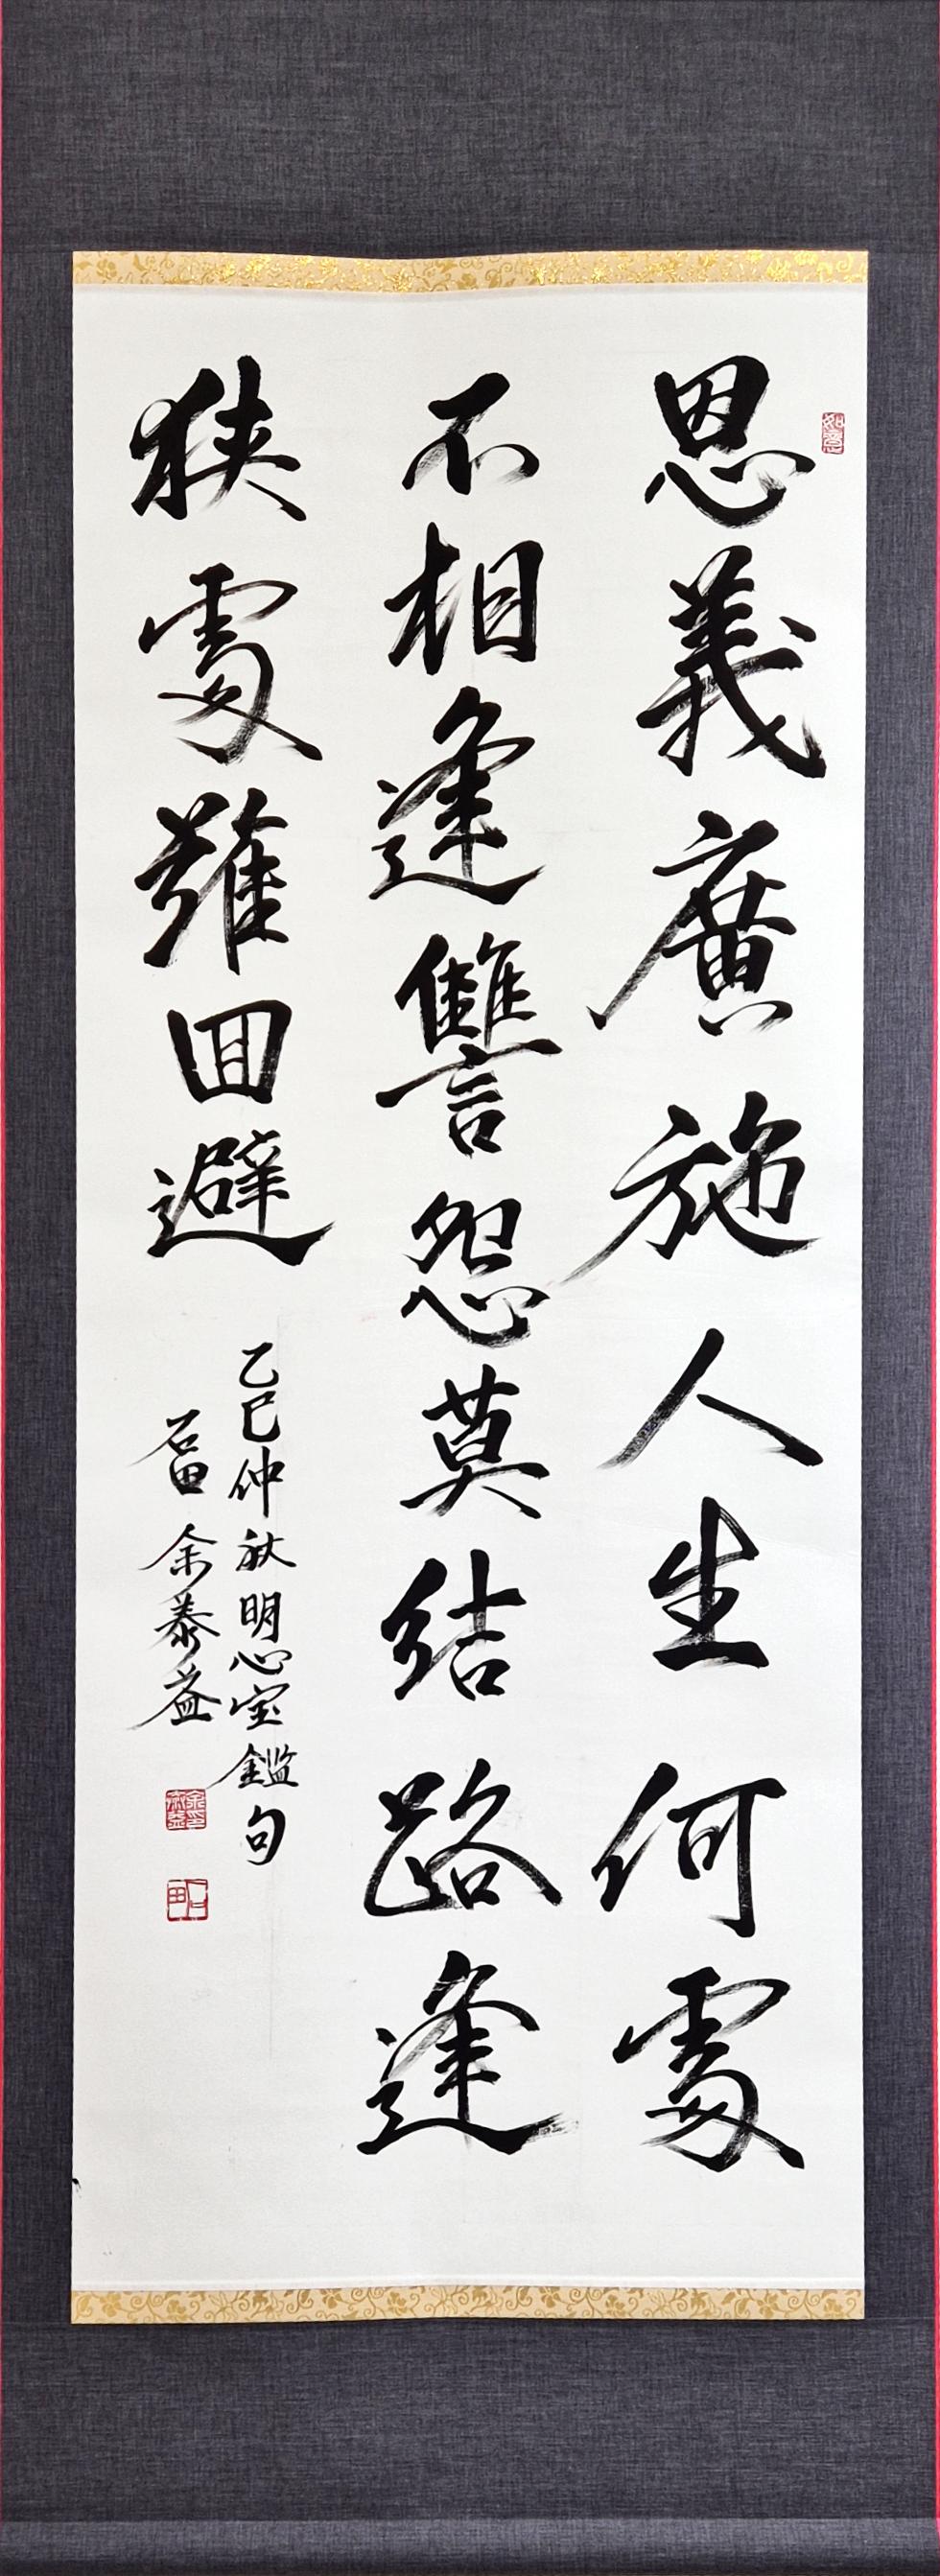 恩義廣施人生何處
不相逢讐怨莫結路逢
狹處難回避
乙巳仲秋明心宝鑑句
石田 余泰益
如意
石田